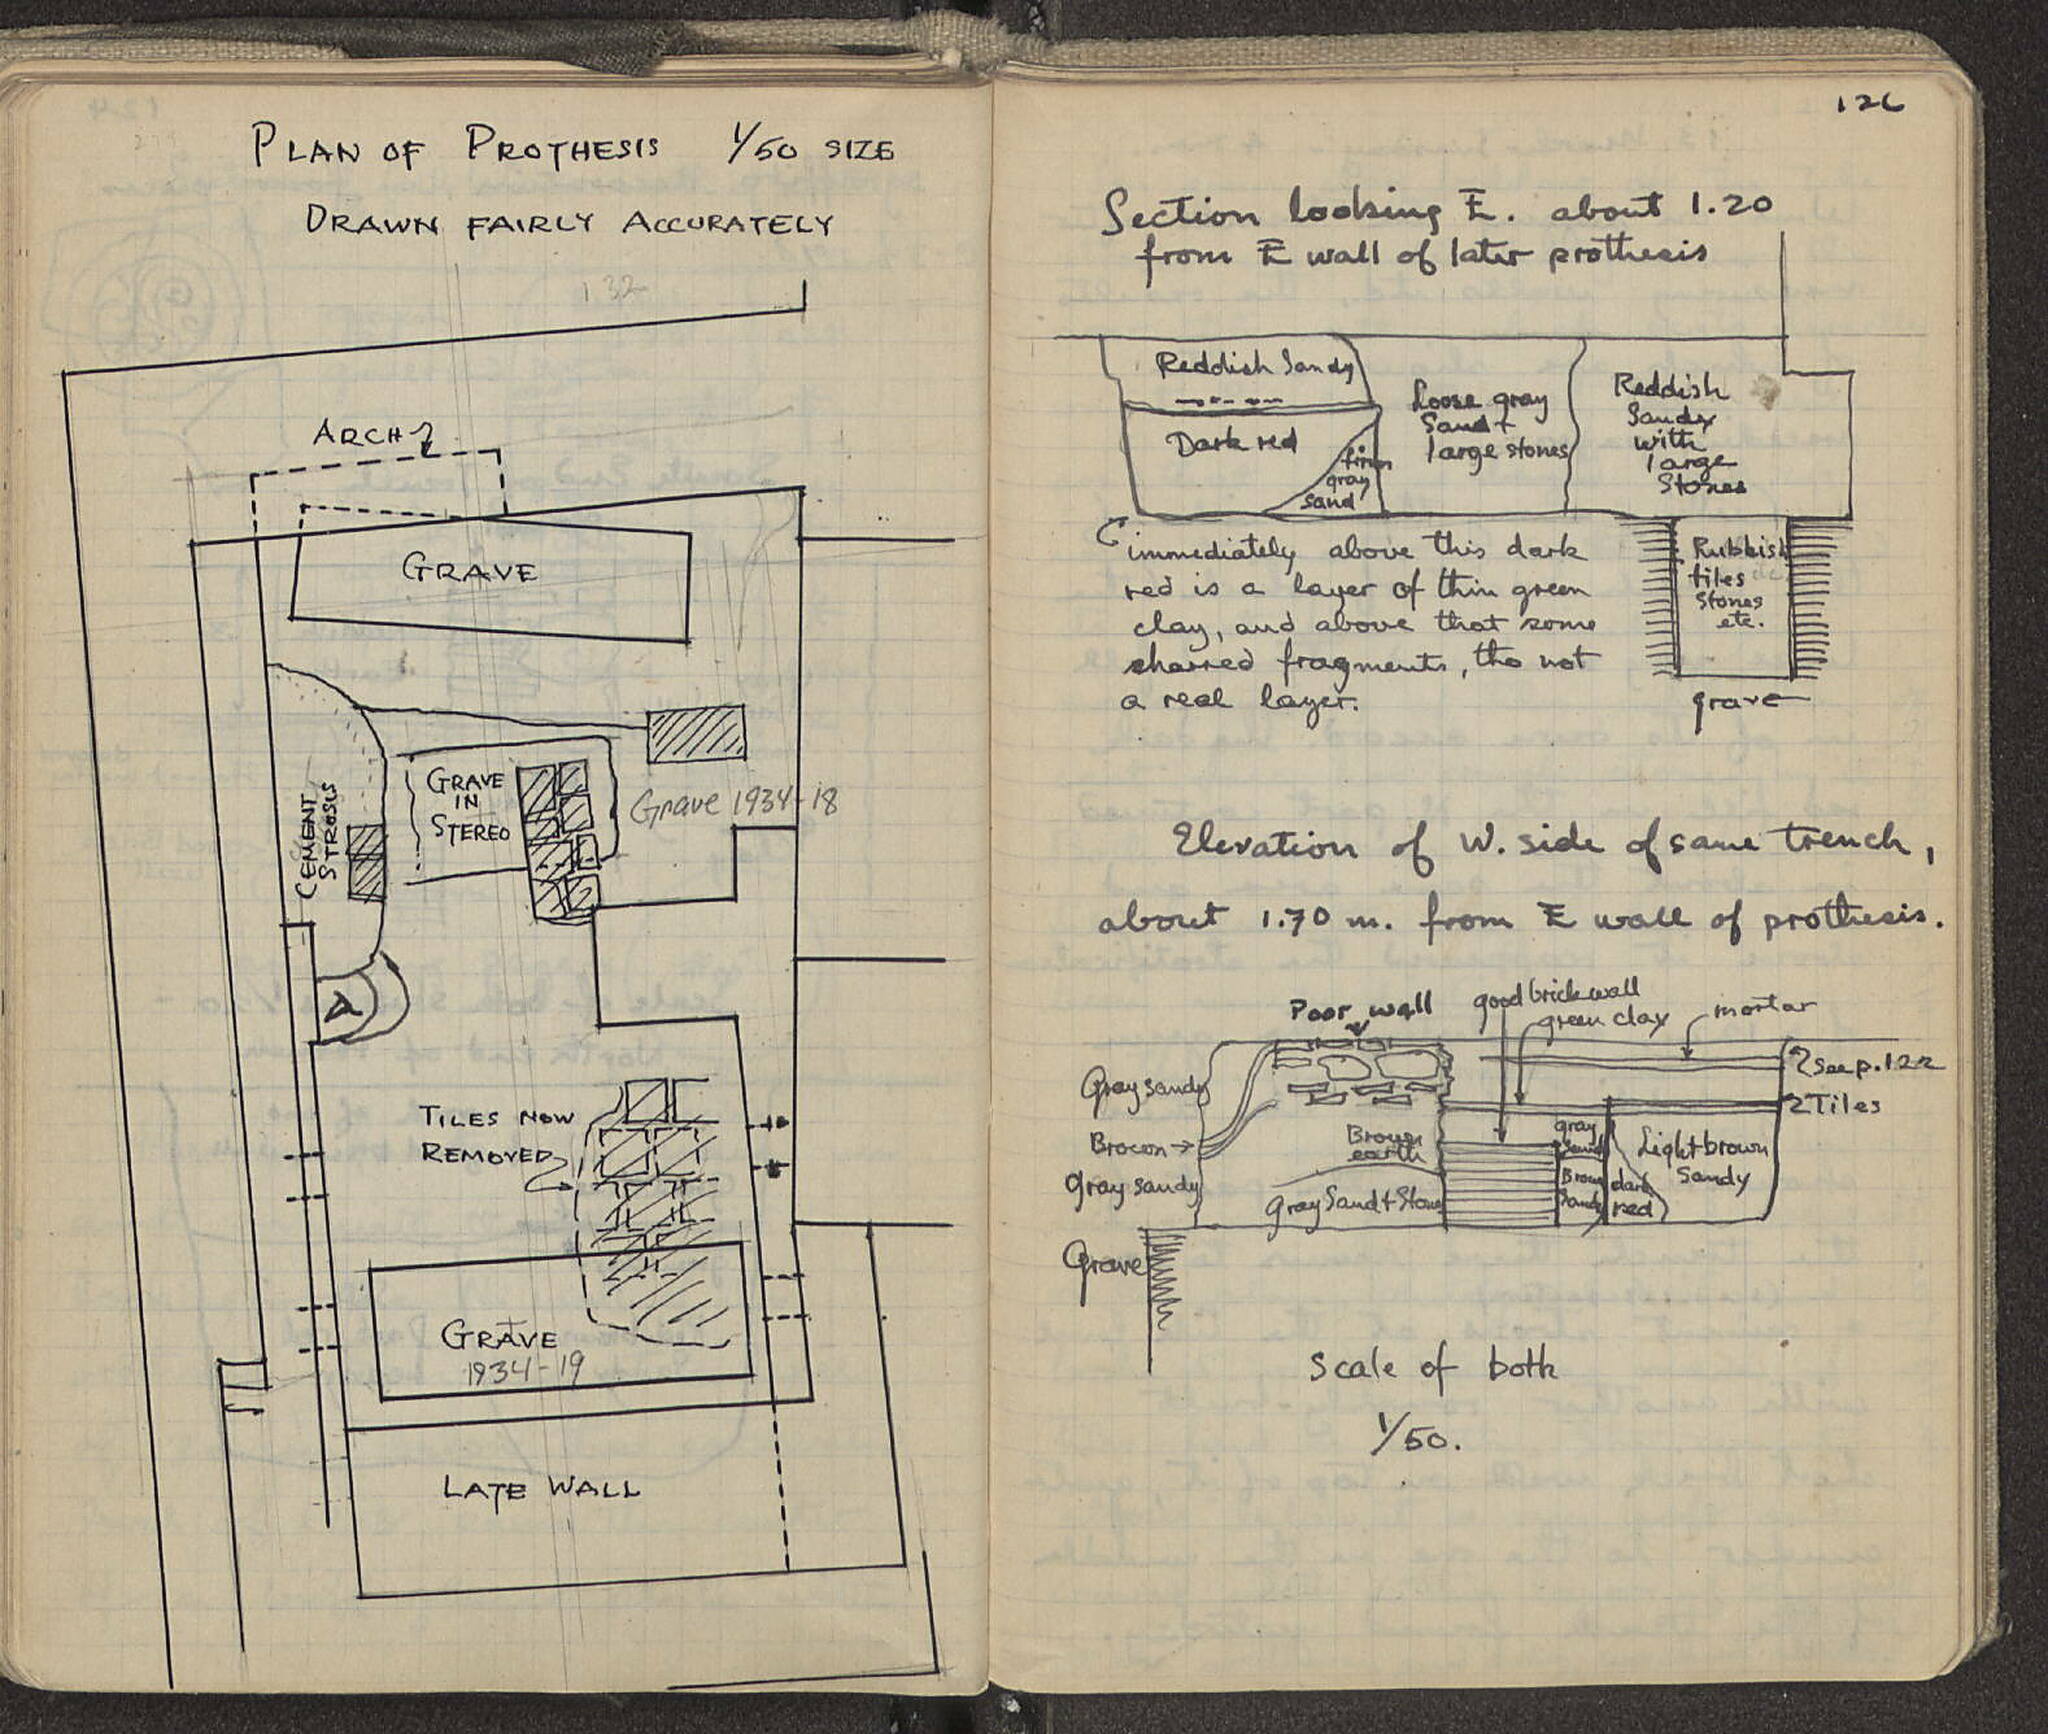 PLAN OF PROTHESIS 1/50 SIZE
DRAWN FAIRLY ACCURATELY
132
ARCH
GRAVE
CEMENT
STROSIS
GRAVE
IN
STEREO
Grave 1934-18
A
TILES NOW
REMOVED
GRAVE
1934-19
LATE WALL
126
Section looking E. about 1.20
from E wall of later prothesis
Reddish Sandy
Dark red
firm
gray
sand
Loose gray
Sand +
large stones
Reddish
Sandy
with
large
Stones
immediately above this dark
red is a layer of thin green
clay, and above that some
charred fragments, tho not
a real layer.
Rubbish
tiles
stones
etc.
grave
Elevation of W. side of same trench,
about 1.70 m. from E wall of prothesis.
Poor wall
good brick wall
green clay
mortar
See p. 122
Tiles
Gray sandy
Brown
earth
gray
Sand
Light brown
Sandy
Gray sandy
Gray Sand + Stone
Brown
Sandy
dark
red
Grave
Scale of both
1/50.